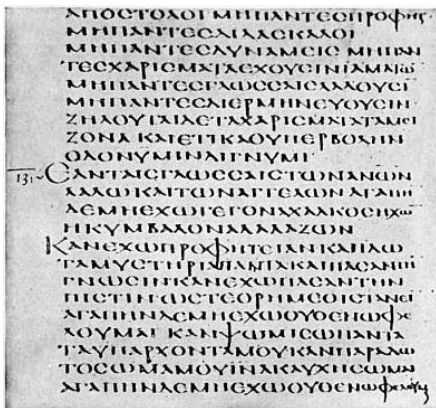 ΑΠΟϹΤΟΛΟΙΜΗΠΑΝΤΕϹΠΡΟΦΗΤ
ΜΗΠΑΝΤΕϹΔΙΔΑϹΚΑΛΟΙ
ΜΗΠΑΝΤΕϹΔΥΝΑΜΕΙϹ ΜΗΠΑΝ
ΤΕϹΧΑΡΙϹΜΑΤΑΕΧΟΥϹΙΝΙΑΜΑΤΩ
ΜΗΠΑΝΤΕϹΓΛΩϹϹΑΙϹΛΑΛΟΥϹΙ
ΜΗΠΑΝΤΕϹΔΙΕΡΜΗΝΕΥΟΥϹΙΝ
ΖΗΛΟΥΤΑΙΔΕΤΑΧΑΡΙϹΜΑΤΑΤΑΜΕΙ
ΖΟΝΑ ΚΑΙΕΤΙΚΑΘΥΠΕΡΒΟΛΗΝ
ΟΔΟΝΥΜΙΝΔΙΓΝΥΜΙ
13: ΕΑΝΤΑΙϹΓΛΩϹϹΑΙϹΤΩΝΑΝΩΝ
ΛΑΛΩΚΑΙΤΩΝΑΓΓΕΛΩΝΑΓΑΠΗ
ΔΕΜΗΕΧΩΓΕΓΟΝΑΧΑΛΚΟϹΗΧΩ
ΗΚΥΜΒΑΛΟΝΑΛΑΛΑΖΩΝ
ΚΑΝΕΧΩΠΡΟΦΗΤΕΙΑΝΚΑΝΙΔΩ
ΤΑΜΥϹΤΗΡΙΑΠΑΝΤΑΚΑΙΠΑϹΑΝΤΗ
ΓΝΩϹΙΝΚΑΝΕΧΩΠΑϹΑΝΤΗΝ
ΠΙϹΤΙΝΩϹΤΕΟΡΗΜΕΘΙϹΤΑΝΕΙ
ΑΓΑΠΗΝΔΕΜΗΕΧΩΟΥΘΕΝΩΦΕ
ΛΟΥΜΑΙ ΚΑΝΨΩΜΙϹΩΠΑΝΤΑ
ΤΑΥΠΑΡΧΟΝΤΑΜΟΥΚΑΝΠΑΡΑΔΩ
ΤΟϹΩΜΑΜΟΥΙΝΑΚΑΥΧΗϹΩΜΑΙ
ΑΓΑΠΗΝΔΕΜΗΕΧΩΟΥΘΕΝΩΦΕΛΟΥΜ